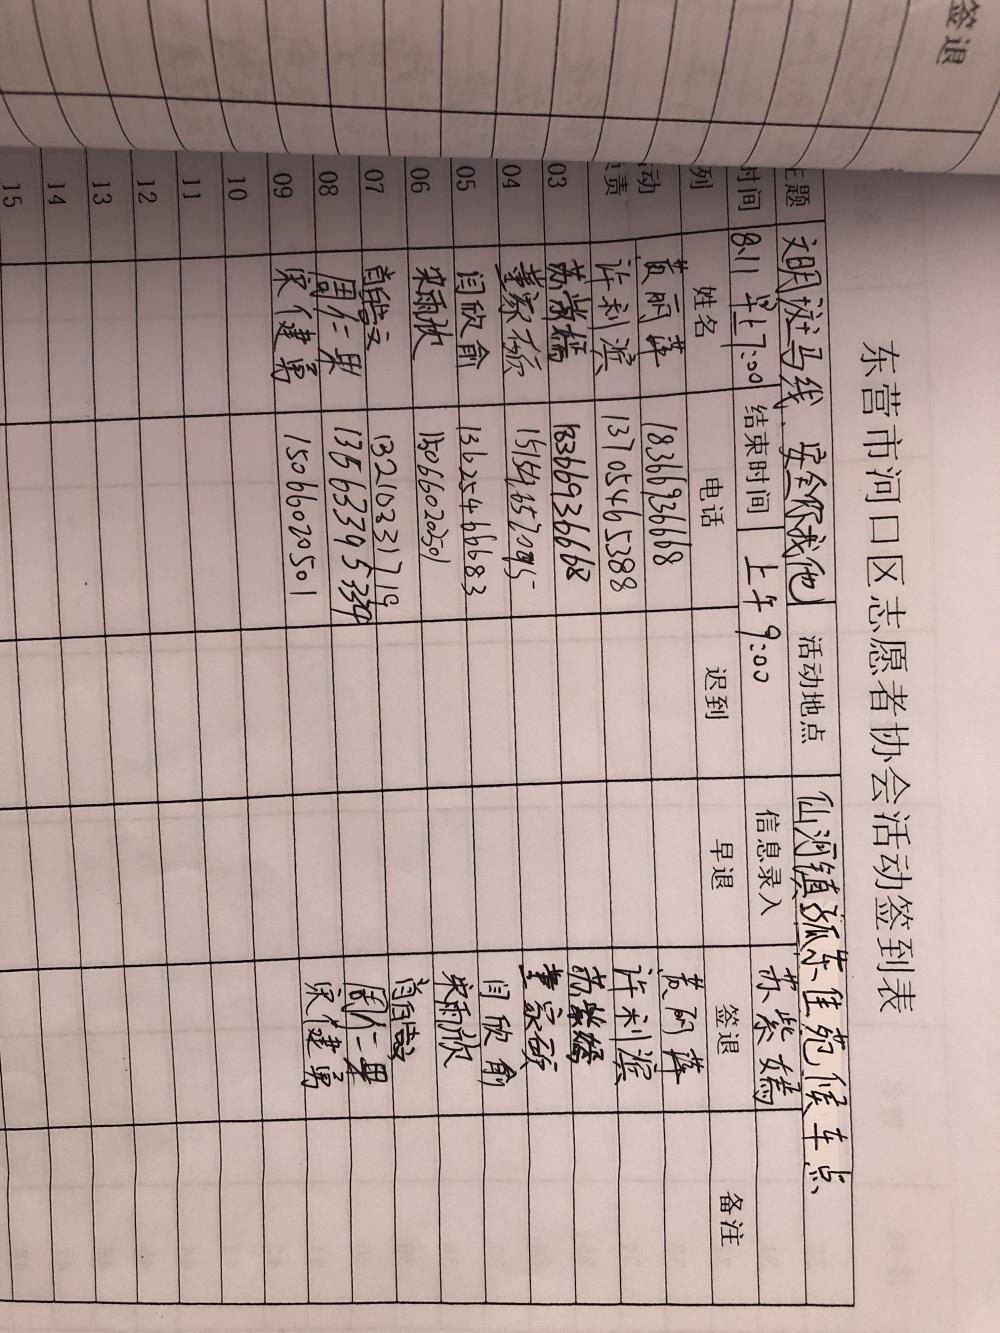 签退
东营市河口区志愿者协会活动签到表
主题 文明斑马线，安全你我他 活动地点 仙河镇孤东佳苑候车点
时间 8.11 早上7:00 结束时间 上午9:00 信息录入 苏紫嫣
列 姓名 电话 迟到 早退 签退 备注
动 黄丽萍 18366936668 黄丽萍
负责 许利滨 13705465388 许利滨
03 苏紫嫣 18366936668 苏紫嫣
04 15154357095
05 闫欣俞 13625466683 闫欣俞
06 宋雨欣 15066020501 宋雨欣
07 13210331719
08 周仁果 周仁果
09 宋健男 15066020501 宋健男
10
11
12
13
14
15